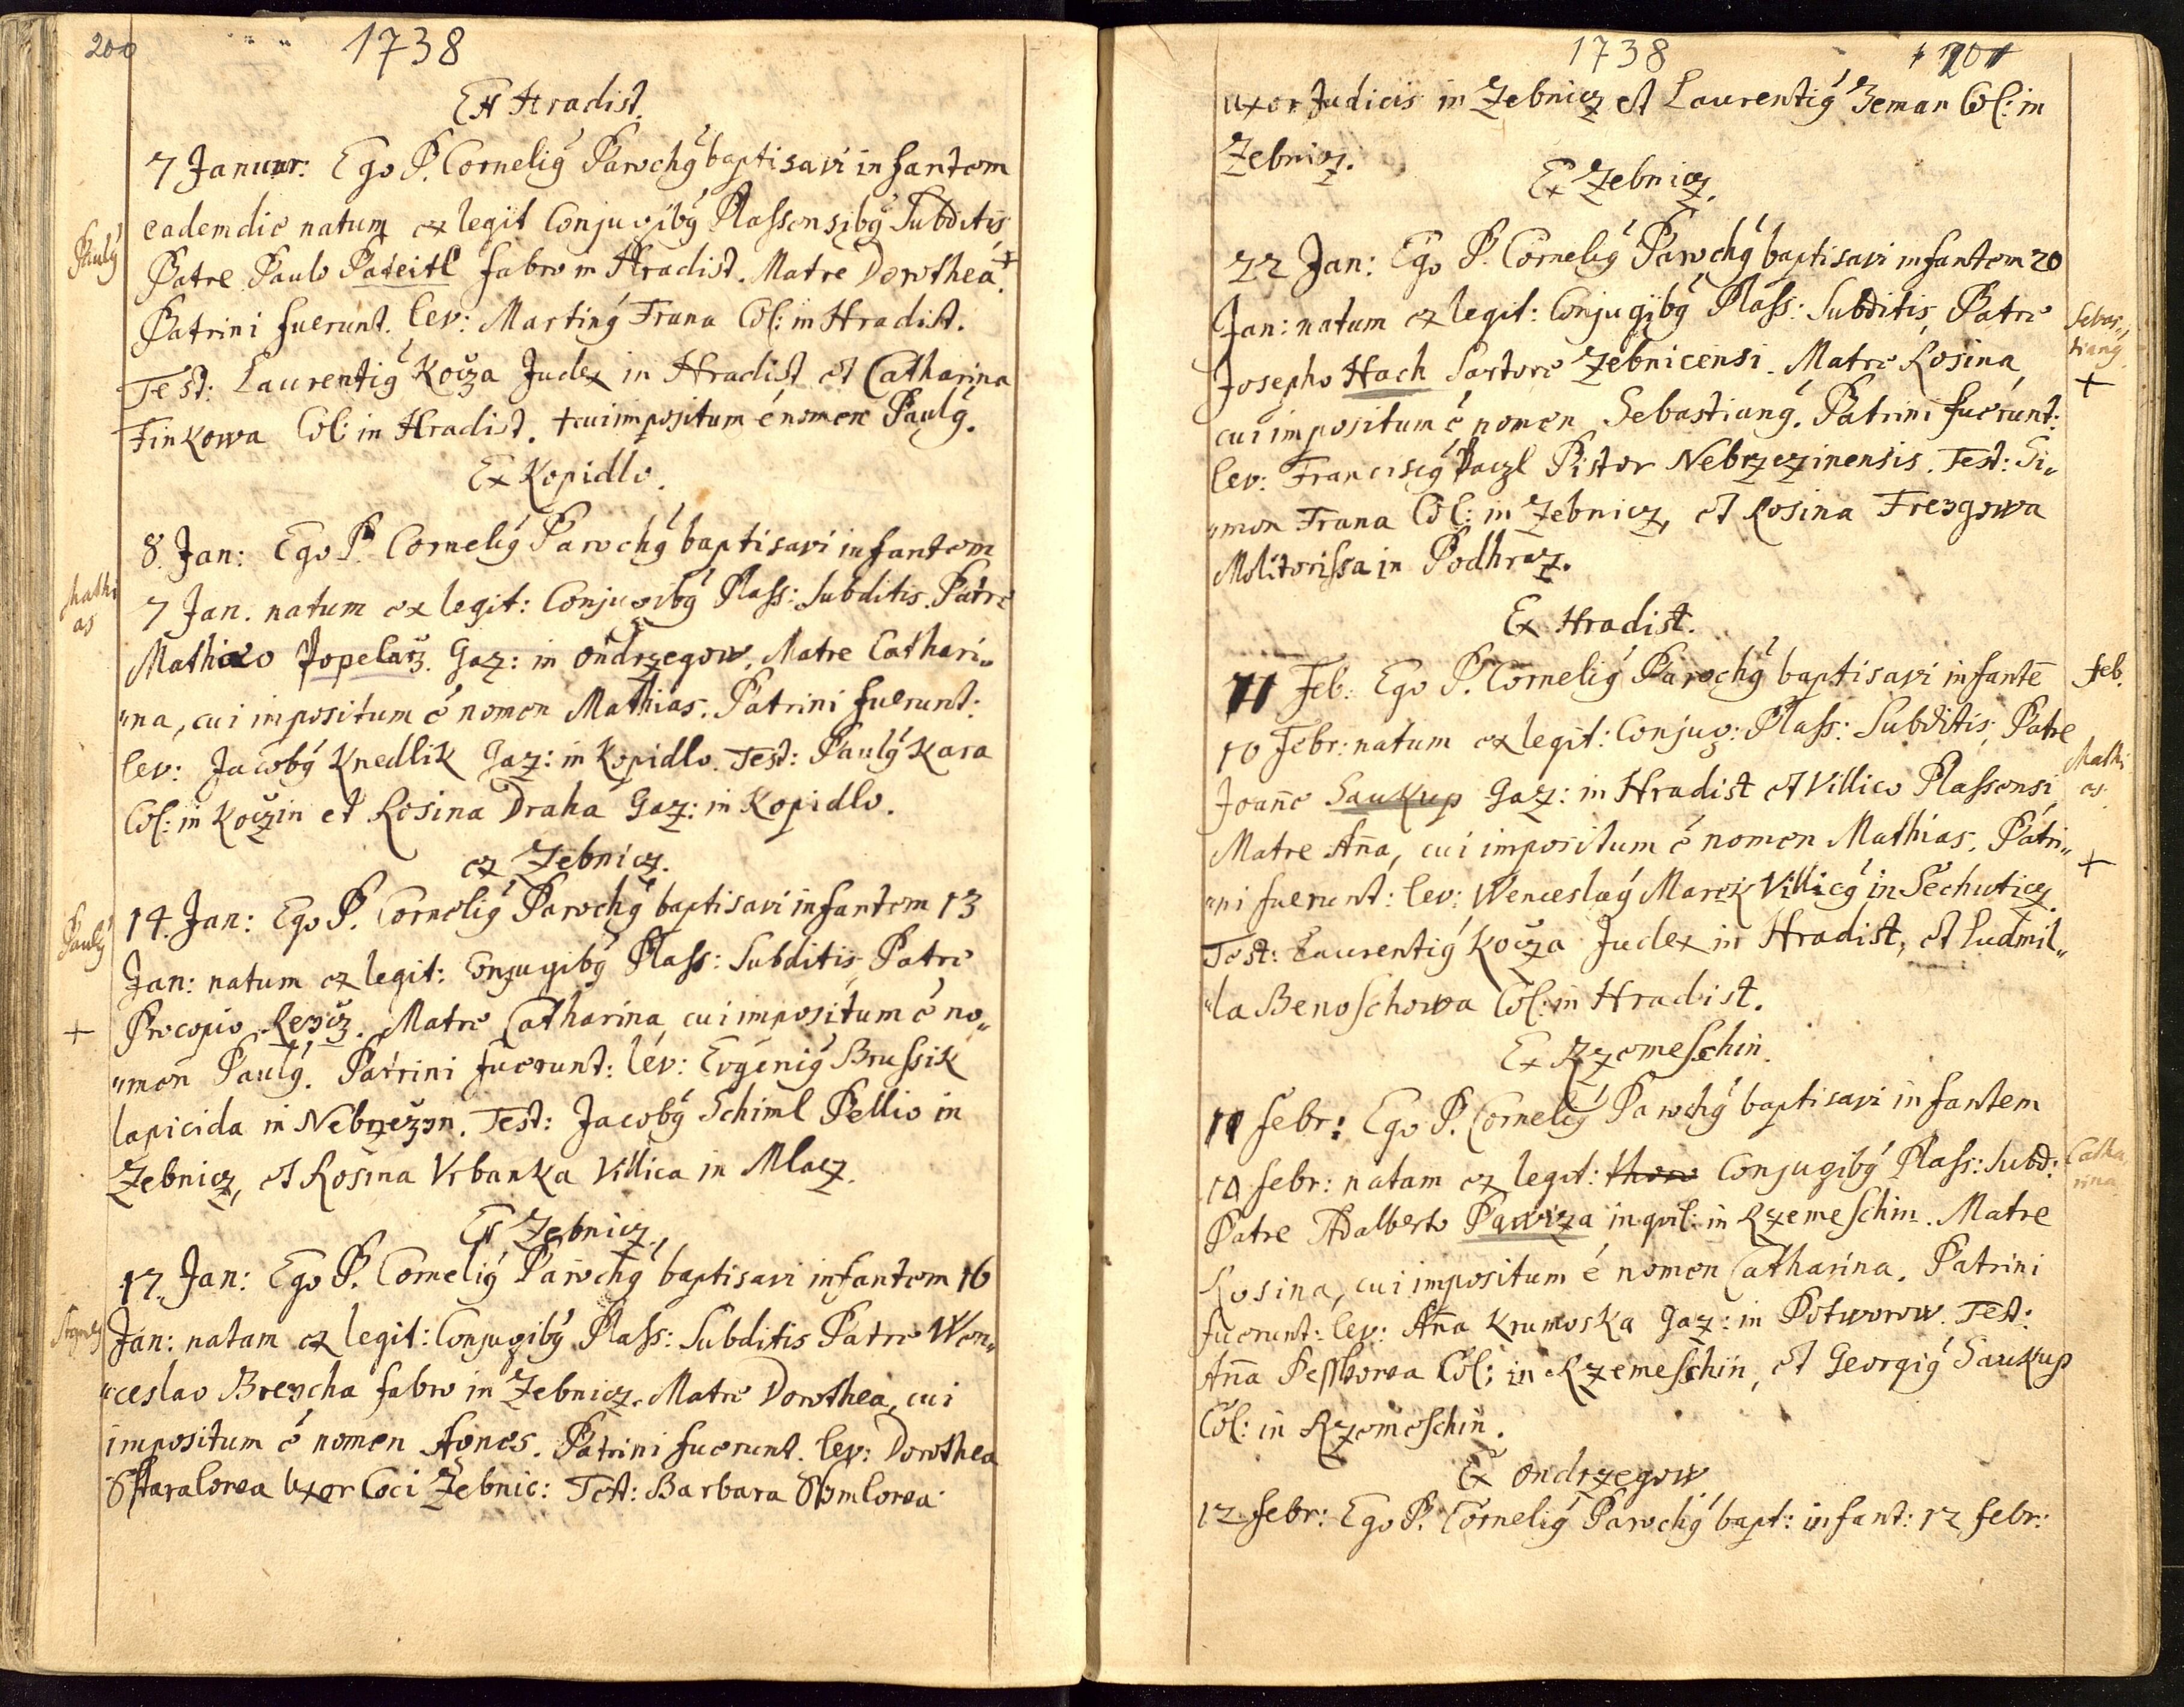 200
1738
Ex Hradist.
7 Januar: Ego P. Cornelig Parochg baptisavi infantem
eademdie natum ex legit Conjugibg Plassensibg Subditis
Paulg
Patre Paulo Pateitl fabro in Hradist. Matre Dorothea. +
Patrini fuerunt. lev: Marting Frana Col: in Hradist.
Test: Laurentig Kocza Judex in Hradist et Catharina
Finkowa Col: in Hradist. + cui impositum é nomen Paulg.
Ex Kopidlo.
8. Jan: Ego P. Cornelig Parochg baptisavi infantem
Mathi
as
7 Jan. natum ex legit: Conjugibg Plass: Subditis. Patre
Mathaeo Popelarz. Gaz: in Ondrzegow. Matre Cathari„
„na, cui impositum é nomen Mathias. Patrini fuerunt:
lev: Jacobg Knedlik Gaz: in Kopidlo. Test: Paulg Kara
Col: in Koczin et Rosina Draha Gaz: in Kopidlo.
ex Zebnicz.
Paulg
14. Jan: Ego P. Cornelig Parochg baptisavi infantem 13
Jan: natum ex legit: Conjugibg Plass: Subditis, Patre
+
Procopio. Matre Catharina, cui impositum é no„
„men Paulg. Patrini fuerunt: lev: Evgenig Brussik
lapicida in Nebrzezon. Test: Jacobg Schiml Pellio in
Zebnicz, et Rosina Vrbanka Villica in Mlacz.
Ex Zebnicz.
17. Jan: Ego P. Cornelig Parochg baptisavi infantem 16
Jan: natam ex legit: Conjugibg Plass: Subditis Patre Wen„
„ceslao Brejcha fabro in Zebnicz. Matre Dorothea, cui
impositum é nomen Agnes. Patrini fuerunt. lev: Dorothea
Uxor loci Zebnic: Test: Barbara
1738
201
uxor Judicis in Zebnicz et Laurentig Zeman Col: in
Zebnicz.
Ex Zebnicz.
22 Jan: Ego P. Cornelig Parochg baptisavi infantem 20
Jan: natum ex legit: Conjugibg Plass: Subditis, Patre
Sebas„
tiang
+
Josepho Hach Sartore Zebnicensi. Matre Rosina,
cui impositum é nomen Sebastiang. Patrini fuerunt:
lev: Franciscg Paczl Pistor Nebrzezinensis. Test: Si„
„mon Frana Col: in Zebnicz, et Rosina Frezgowa
Molitorissa in Podhracz.
Ex Hradist.
11 Feb: Ego P. Cornelig Parochg baptisavi infantē
feb.
10 Febr: natum ex legit: Conjug: Plass: Subditis, Patre
Mathi
as.
Joañe Saukup Gaz: in Hradist et Villico Plassensi,
Matre Aña, cui impositum é nomen Mathias. Patri„
+
„ni fuerunt: lev: Wenceslag Marek Villicg in Sechuticz.
Test: Laurentig Kocza Judex in Hradist, et Ludmil„
„la Benoschowa Col: in Hradist.
Ex Rzemeschin.
11 febr: Ego P. Cornelig Parochg baptisavi infantem
10 febr: natam ex legit: thoro Conjugibg Plass: Subd:
Catha„
rina
Patre Adalberto Pawiza inquil: in Rzemeschin. Matre
Rosina, cui impositum é nomen Catharina. Patrini
fuerunt: lev: Aña Krumoska Gaz: in Potworow. Test:
Aña Col: in Rzemeschin, et Georgig Saukup
Col: in Rzemeschin.
Ex Ondrzegow
12 febr: Ego P. Cornelig Parochg bapt: infant: 12 febr: